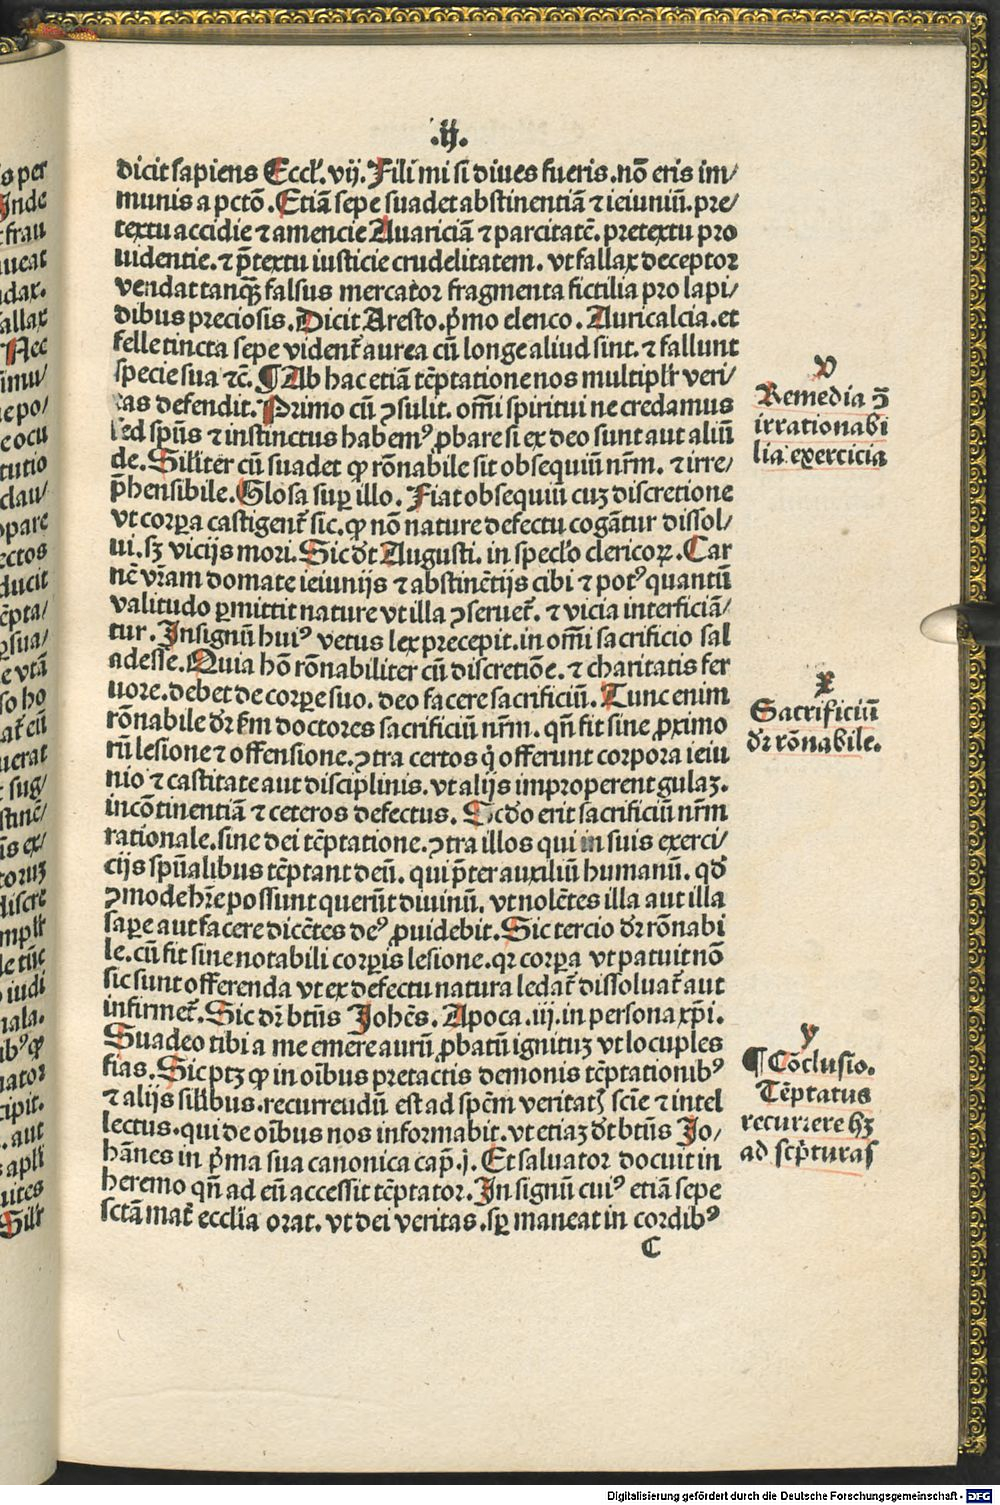 .ij.
dicit sapiens Eccl'. vij. Fili mi si diues fueris. nō eris im/
munis a pctō. Etiā sepe suadet abstinentiā ⁊ ieiuniū. pre/
textu accidie ⁊ amencie Auariciā ⁊ parcitatē. pretextu pro
uidentie. ⁊ p̄textu iusticie crudelitatem. vt fallax deceptor
vendat tanqꝫ falsus mercator fragmenta fictilia pro lapi/
dibus preciosis. Dicit Aresto. p̄mo elenco. Auricalcia. et
felle tincta sepe vident̄ aurea cū longe aliud sint. ⁊ fallunt
specie sua ⁊c̄. ¶ Ab hac etiā tēptatione nos multiplr̄ veri/
tas defendit. Primo cū ꝯsulit. om̄i spiritui ne credamus
sed spūs ⁊ instinctus habemꝰ ꝓbare si ex deo sunt aut aliū
de. Silīter cū suadet ꝙ rōnabile sit obsequiū nrm̄. ⁊ irre/
p̄hensibile. Glosa suꝑ illo. Fiat obsequiū cuꝫ discretione
vt corꝑa castigent̄ sic. ꝙ nō nature defectu cogātur dissol/
ui. sꝫ vicijs mori. Sic dt̄ Augusti. in spec̄lo clericoꝝ. Car
nē vrām domate ieiunijs ⁊ abstinētijs cibi ⁊ potꝰ quantū
valitudo ꝑmittit nature vt illa ꝯseruet̄. ⁊ vicia interficiā/
tur. In signū huiꝰ vetus lex precepit. in om̄i sacrificio sal
adesse. Quia hō rōnabiliter cū discretiōe. ⁊ charitatis fer
uore. debet de corꝑe suo. deo facere sacrificiū. Tunc enim
rōnabile dr̄ fm̄ doctores sacrificiū nrm̄. qn̄ fit sine ꝓximo
rū lesione ⁊ offensione. ꝯtra certos q̄ offerunt corpora ieiu
nio ⁊ castitate aut disciplinis. vt alijs improperent gulaꝫ.
incōtinentiā ⁊ ceteros defectus. Scdo erit sacrificiū nrm̄
rationale. sine dei tēptatione. ꝯtra illos qui in suis exerci/
cijs spūalibus tēptant deū. qui p̄ter auxiliū humanū. qd̄
ꝯmode hr̄e possunt querūt diuinū. vt nolētes illa aut illa
saꝑe aut facere dicētes deꝰ ꝓuidebit. Sic tercio dr̄ rōnabi
le. cū fit sine notabili corꝑis lesione. qr corꝑa vt patuit nō
sic sunt offerenda vt ex defectu natura ledat̄ dissoluat̄ aut
infirmet̄. Sic dr̄ btūs Johēs. Apoca. iij. in persona xp̄i.
Suadeo tibi a me emere aurū ꝓbatū ignituꝫ vt locuples
fias. Sic ptꝫ ꝙ in oībus pretactis demonis tēptationibꝰ
⁊ alijs silībus. recurrendū est ad spēm veritatꝭ scīe ⁊ intel
lectus. qui de oībus nos informabit. vt etiaꝫ dt̄ btūs Jo/
hānes in p̄ma sua canonica cap̄. j. Et saluator docuit in
heremo qn̄ ad eū accessit tēptator. In signū cuiꝰ etiā sepe
sctā mat̄ ecclīa orat. vt dei veritas. sꝑ maneat in cordibꝰ
C
v
Remedia ꝯ̄
irrationabi
lia exercicia
x
Sacrificiū
dr̄ rōnabile.
y
¶ Cōclusio.
Tēptatus
recurrere hꝫ
ad scp̄turas
Digitalisierung gefördert durch die Deutsche Forschungsgemeinschaft - DFG